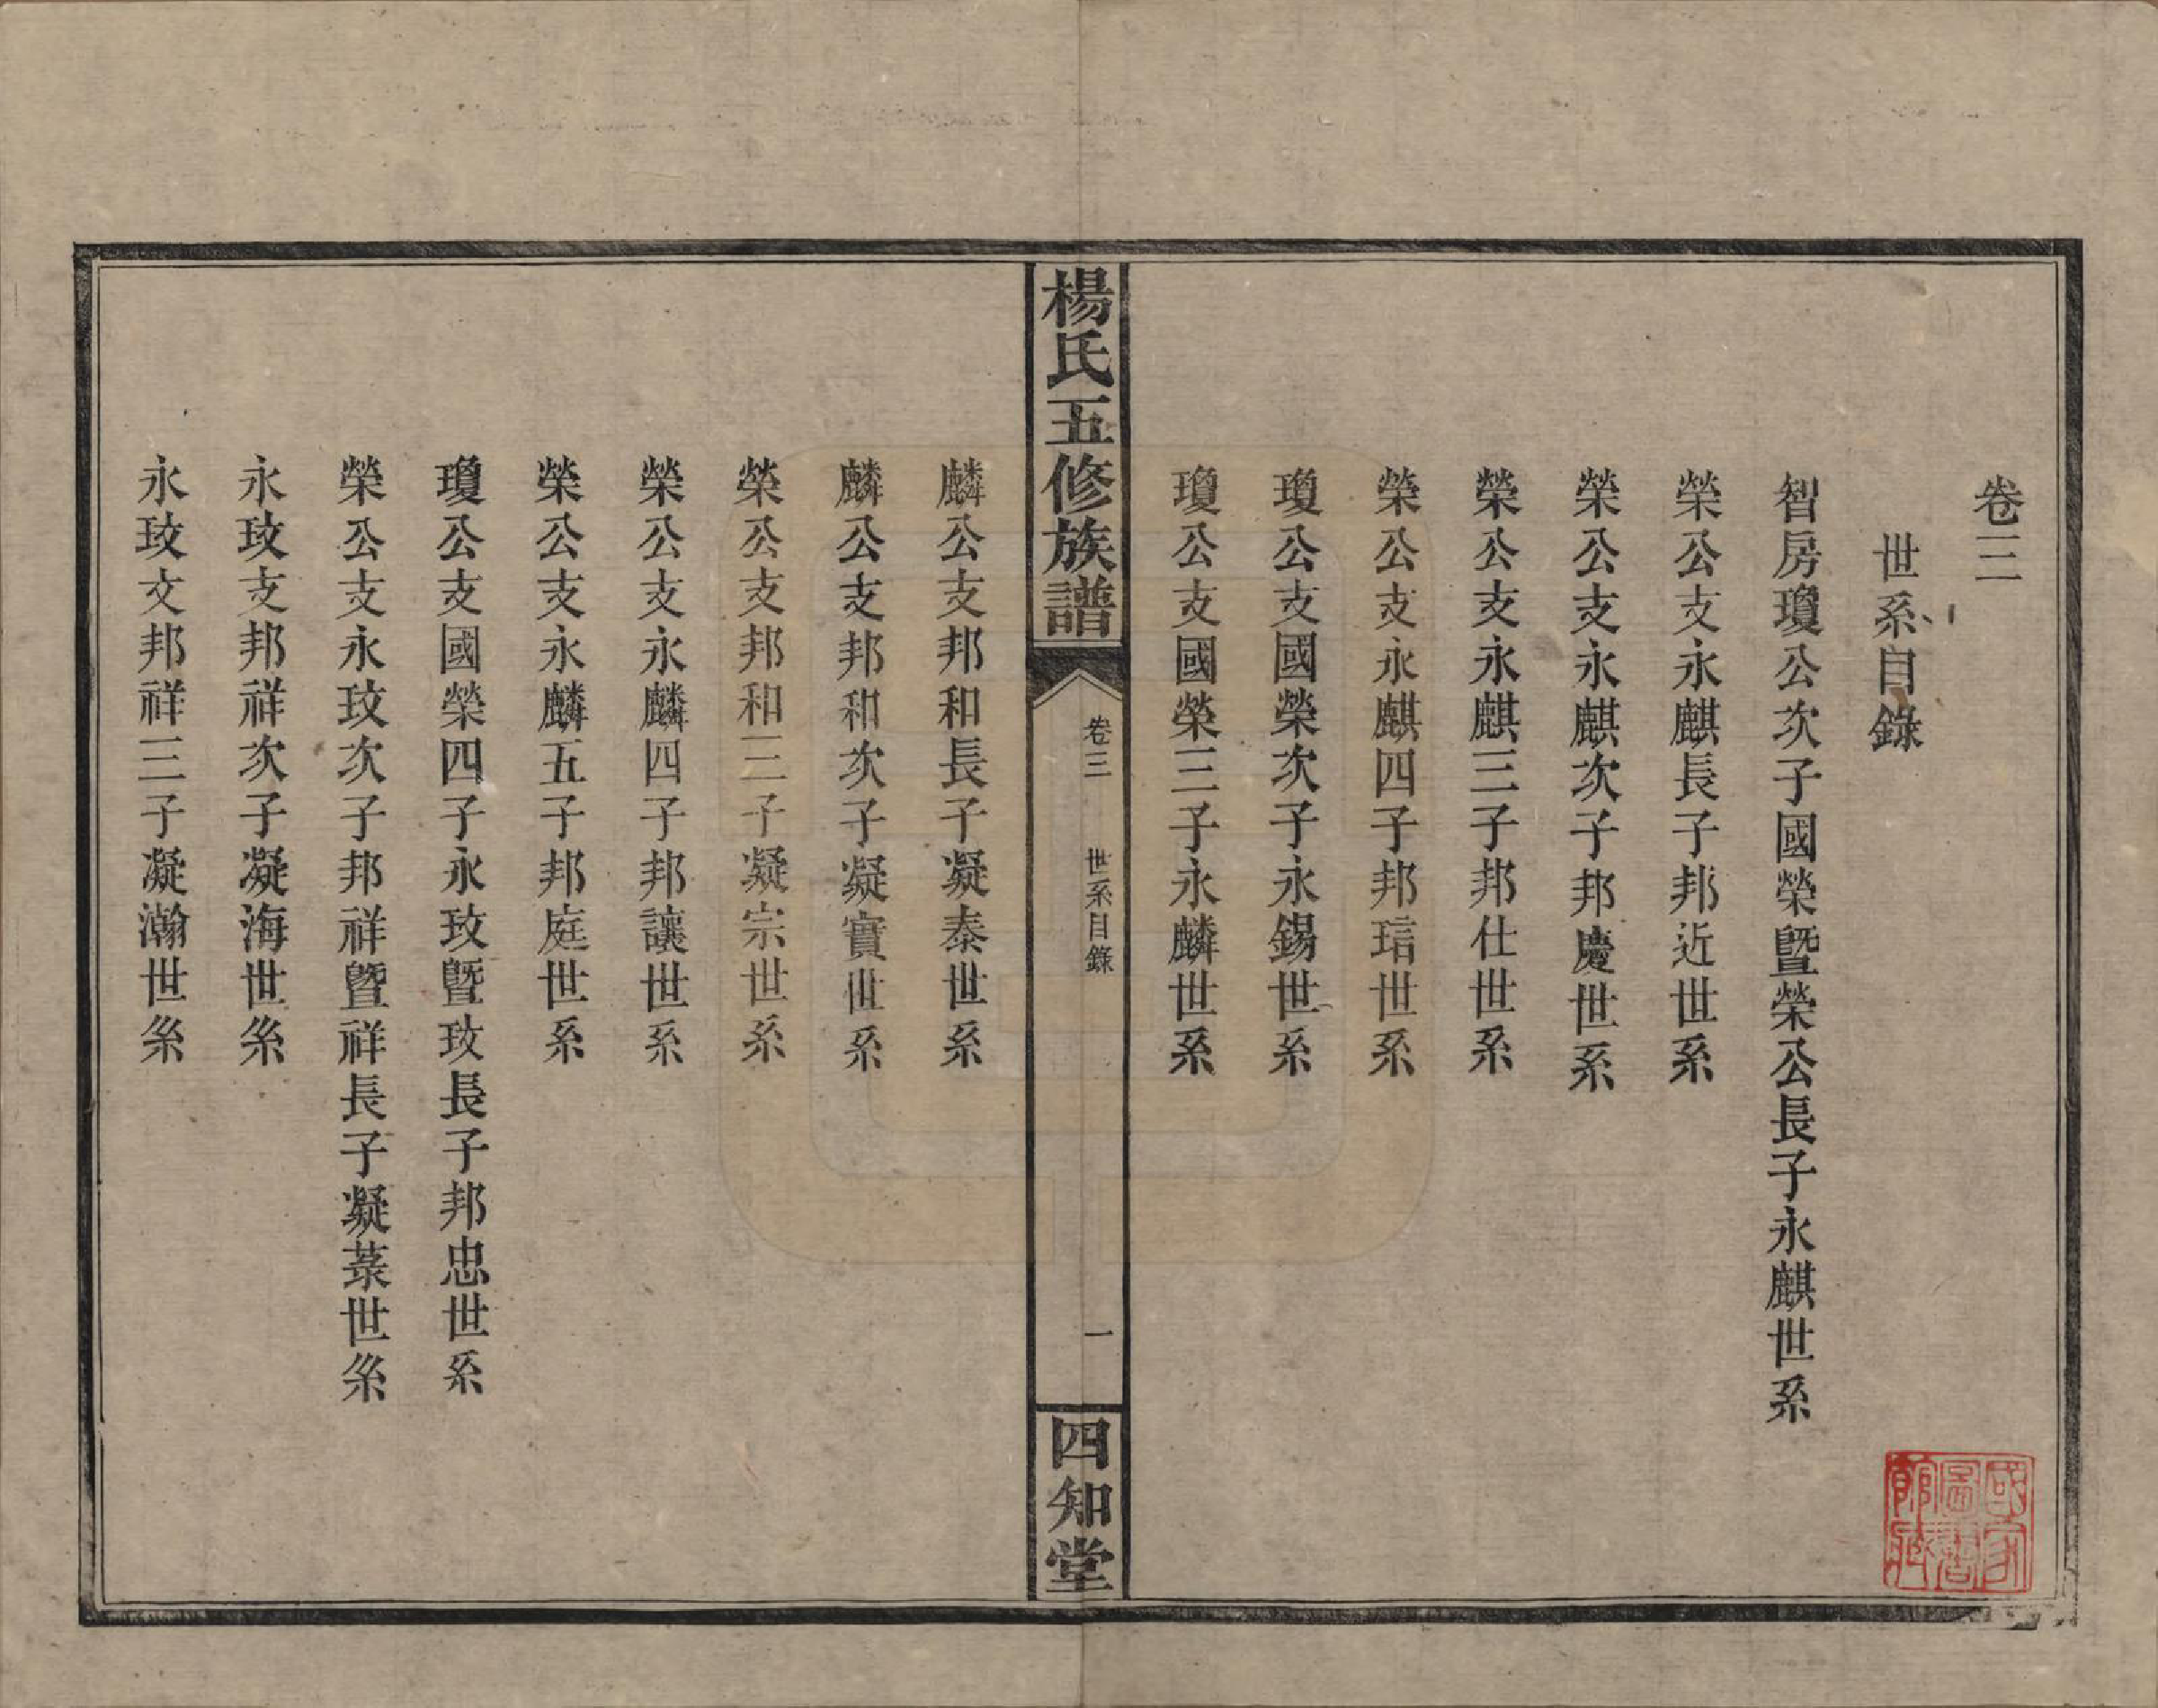 卷三
世系目錄
智房瓊公次子國榮暨榮公長子永麒世系
榮公支永麒長子邦近世系
榮公支永麒次子邦慶世系
榮公支永麒三子邦仕世系
榮公支永麒四子邦琂世系
瓊公支國榮次子永錫世系
瓊公支國榮三子永麟世系
楊氏五修族譜
卷三
世系目錄
一
四知堂
麟公支邦和長子凝泰世系
麟公支邦和次子凝實世系
榮公支邦和三子凝宗世系
榮公支永麟四子邦讓世系
榮公支永麟五子邦庭世系
瓊公支國榮四子永玟暨玟長子邦忠世系
榮公支永玟次子邦祥暨祥長子凝菉世系
永玟支邦祥次子凝海世系
永玟支邦祥三子凝瀚世系
國家圖書館藏